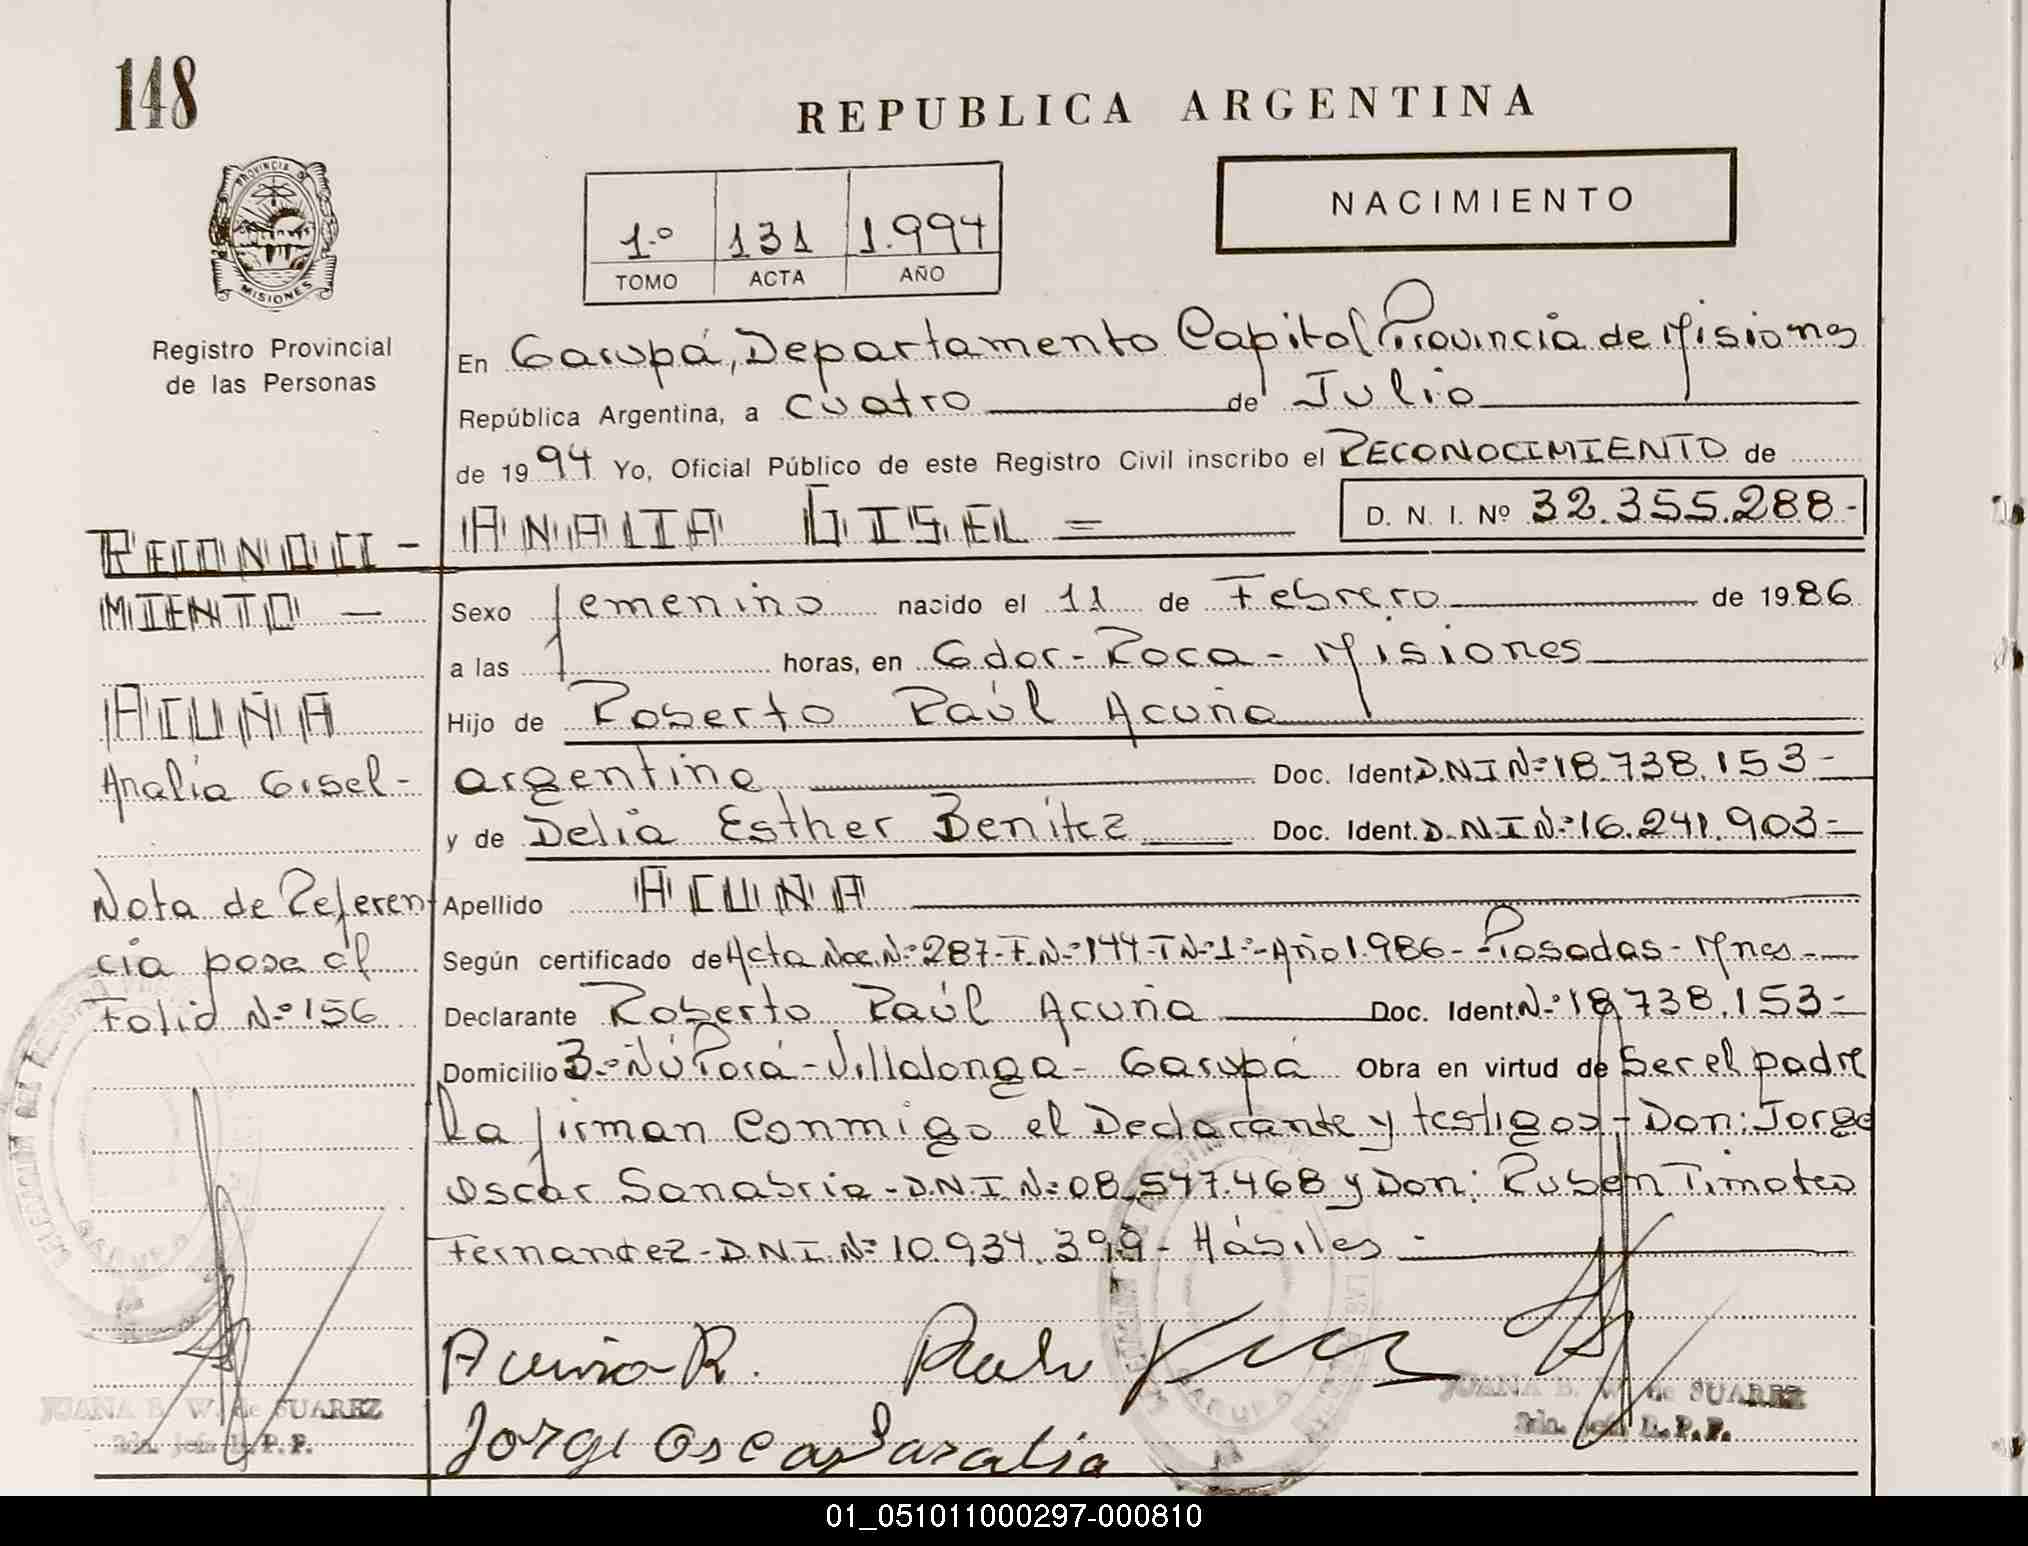 148
REPUBLICA ARGENTINA
NACIMIENTO
1.º 131 1.994
TOMO ACTA AÑO
PROVINCIA DE
MISIONES
Registro Provincial
de las Personas
En Garupá, Departamento Capital Provincia de Misiones
República Argentina, a cuatro de Julio
de 1994 Yo, Oficial Público de este Registro Civil inscribo el RECONOCIMIENTO de
ANALIA GISEL = D. N. I. Nº 32.355.288-
RECONOCI-
MIENTO
ACUÑA
Analia Gisel-
Nota de Referen
cia pasa al
Folio Nº 156
Sexo femenino nacido el 11 de Febrero de 1986
a las horas, en Gdor-Roca-Misiones
Hijo de Roberto Raúl Acuña
argentina Doc. Ident. D.N.I Nº 18.738.153-
y de Delia Esther Benítez Doc. Ident. D.N.I Nº 16.241.903-
Apellido ACUÑA
Según certificado de Acta Nac. Nº 287-F.Nº 144-T Nº 1º-Año 1.986-Posadas-Mnes-
Declarante Roberto Raúl Acuña Doc. Ident. Nº 18.738.153-
Domicilio Bº Ñú Porá-Villalonga-Garupá Obra en virtud de Ser el padre
La firman Conmigo el Declarante y testigos-Don: Jorge
Oscar Sanabria-D.N.I Nº 08.547.468 y Don: Ruben Timoteo
Fernandez-D.N.I. Nº 10.934.399-Hábiles-
Acuña R.
Jorge Oscar
JUANA B. W. de SUAREZ
JUANA B. W. de SUAREZ
01_051011000297-000810